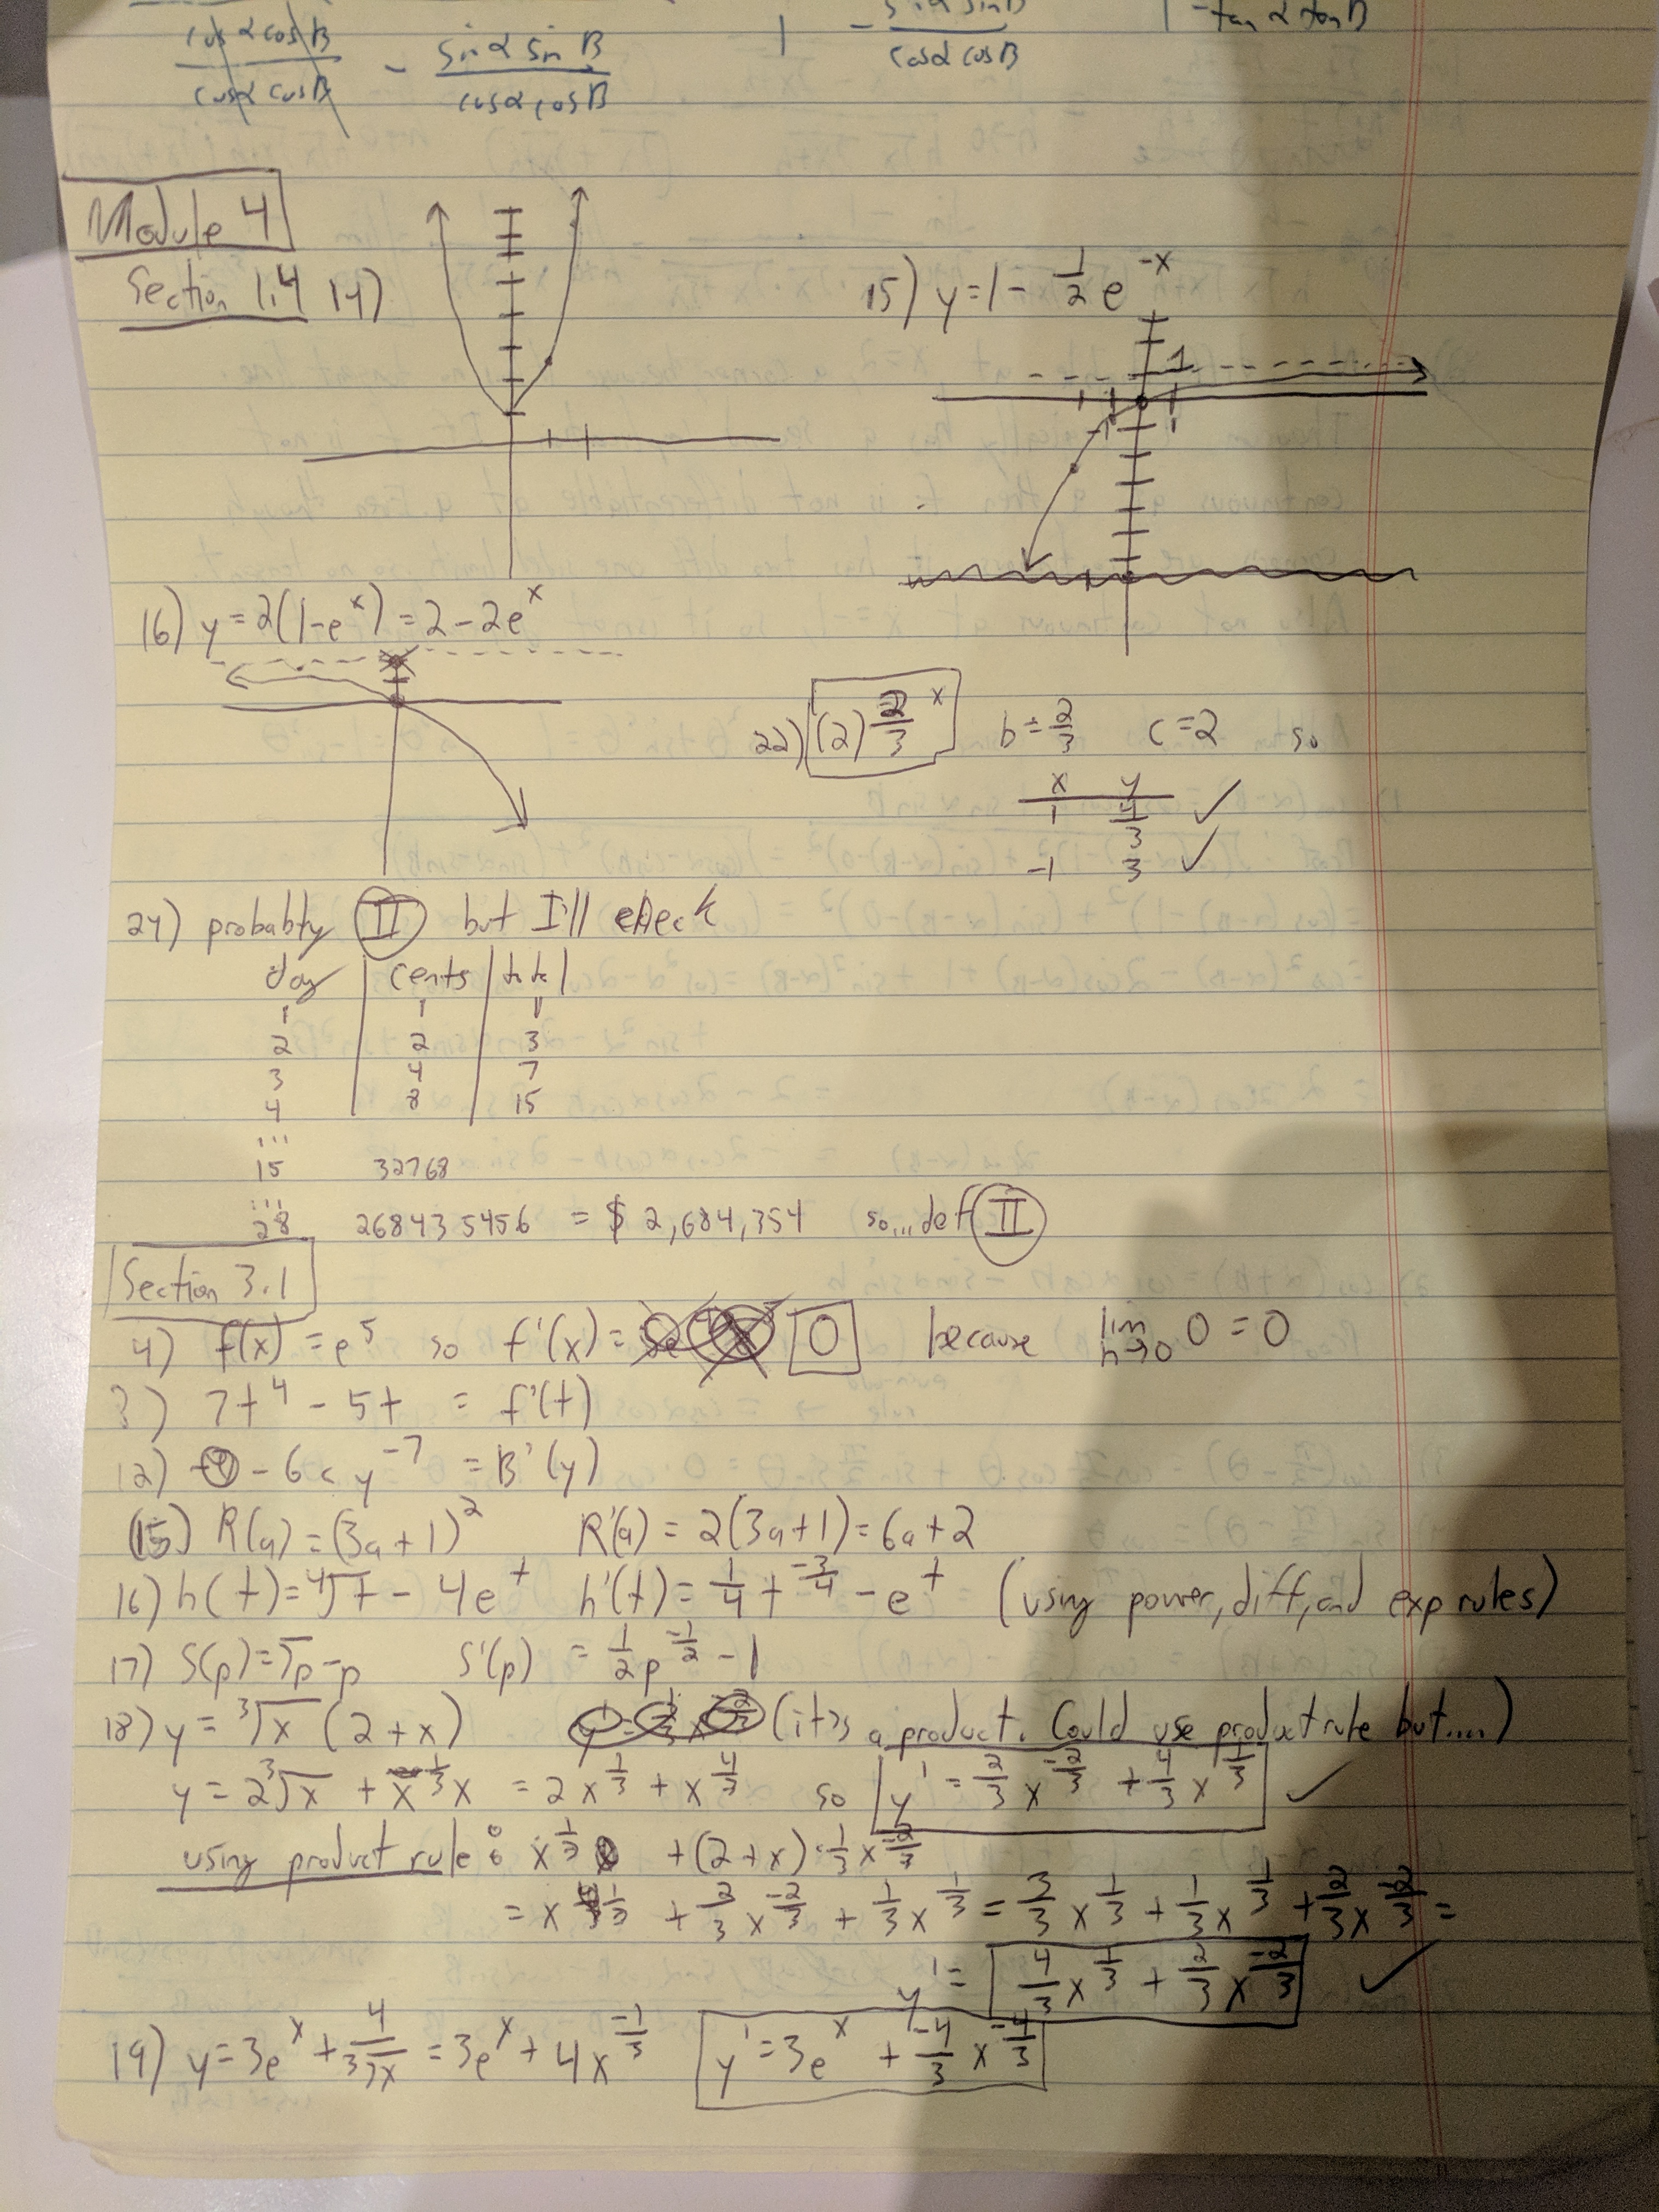 cosα cosB / cosα cosB - sinα sinB / cosα cosB    1 - sinα sinB / cosα cosB    1 - tanα tanB
Module 4
Section 1.4 14)
15) y = 1 - 1/2 e^-x
1
-1 1
16) y = 2(1-e^x) = 2 - 2e^x
22) (2) 2/3^x    b = 2/3    c = 2    so
x y
1 4/3 ✓
-1 3 ✓
24) probably II but I'll check
day | cents | total
1 1 1
2 2 3
3 4 7
4 8 15
...
15 32768
...
28 268435456 = $ 2,684,354 so...def II
Section 3.1
4) f(x) = e^5 so f'(x) = 0 because lim h→0 0 = 0
?) 7t^4 - 5t = f'(t)
12) -6cy^-7 = B'(y)
(15) R(a) = (3a+1)^2    R'(a) = 2(3a+1) = 6a+2
16) h(t) = ⁴√t - 4e^t    h'(t) = 1/4 t^-3/4 - e^t (using power, diff, and exp rules)
17) S(p) = √p - p    S'(p) = 1/2 p^-1/2 - 1
18) y = ³√x (2+x)    (it's a product. Could use product rule but....)
y = 2³√x + x^1/3 x = 2x^1/3 + x^4/3 so y' = 2/3 x^-2/3 + 4/3 x^1/3 ✓
using product rule: x^1/3 + (2+x)·1/3 x^-2/3
= x^1/3 + 2/3 x^-2/3 + 1/3 x^1/3 = 3/3 x^1/3 + 1/3 x^1/3 + 2/3 x^-2/3 =
y' = 4/3 x^1/3 + 2/3 x^-2/3 ✓
19) y = 3e^x + 4/³√x = 3e^x + 4x^-1/3    y' = 3e^x + -4/3 x^-4/3